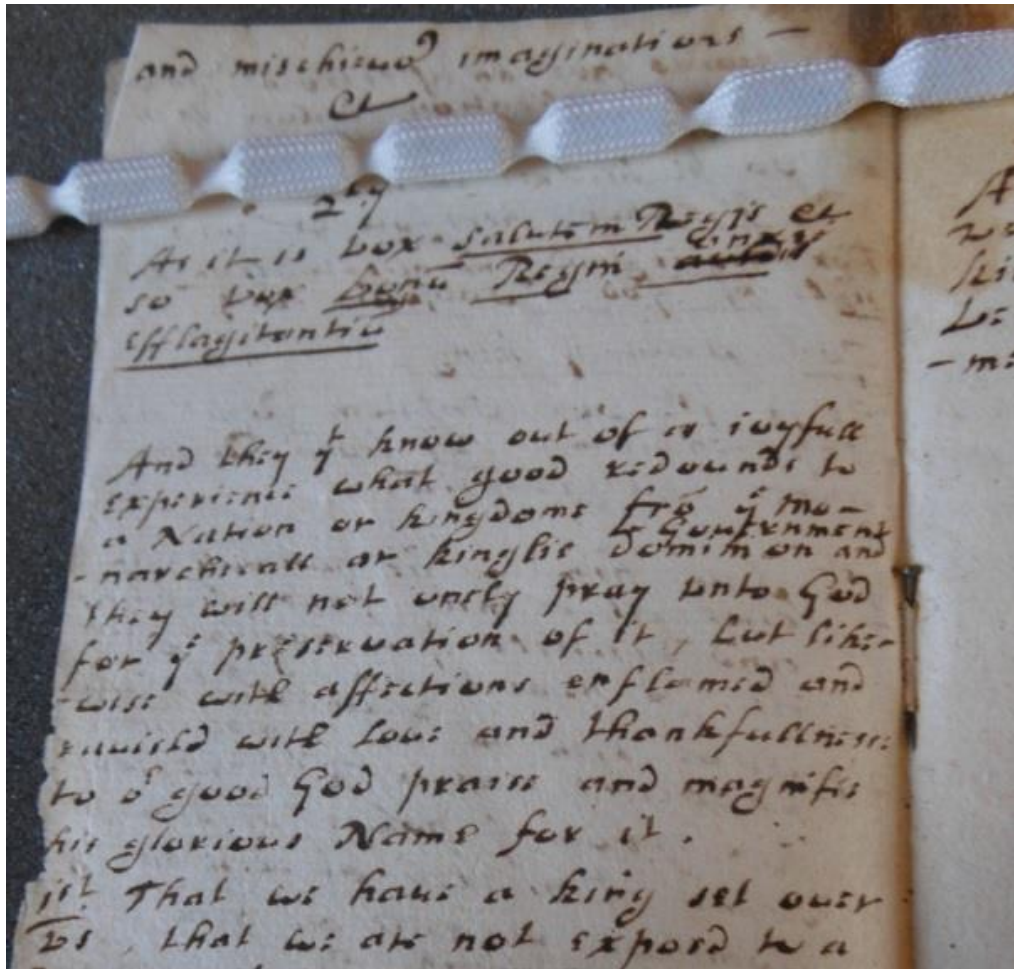 and mischievo9 imaginations —
Et
2ly
As it is vox salutem Regis et
so vox bonū Regni
efflagitantiū
And they yt know out of a ioyfull
experience what good redounds to
a Nation or kingdome frō ye mo-
-narchicall or kinglie dominion and
Government
they will not onely pray vnto God
for ye preservation of it, but like-
-wise with affections enflamed and
ravisht with love and thankfullnesse
to or good God praise and magnifie
his glorious Name for it.
1st That we have a king set over
vs, that we are not exposed to a